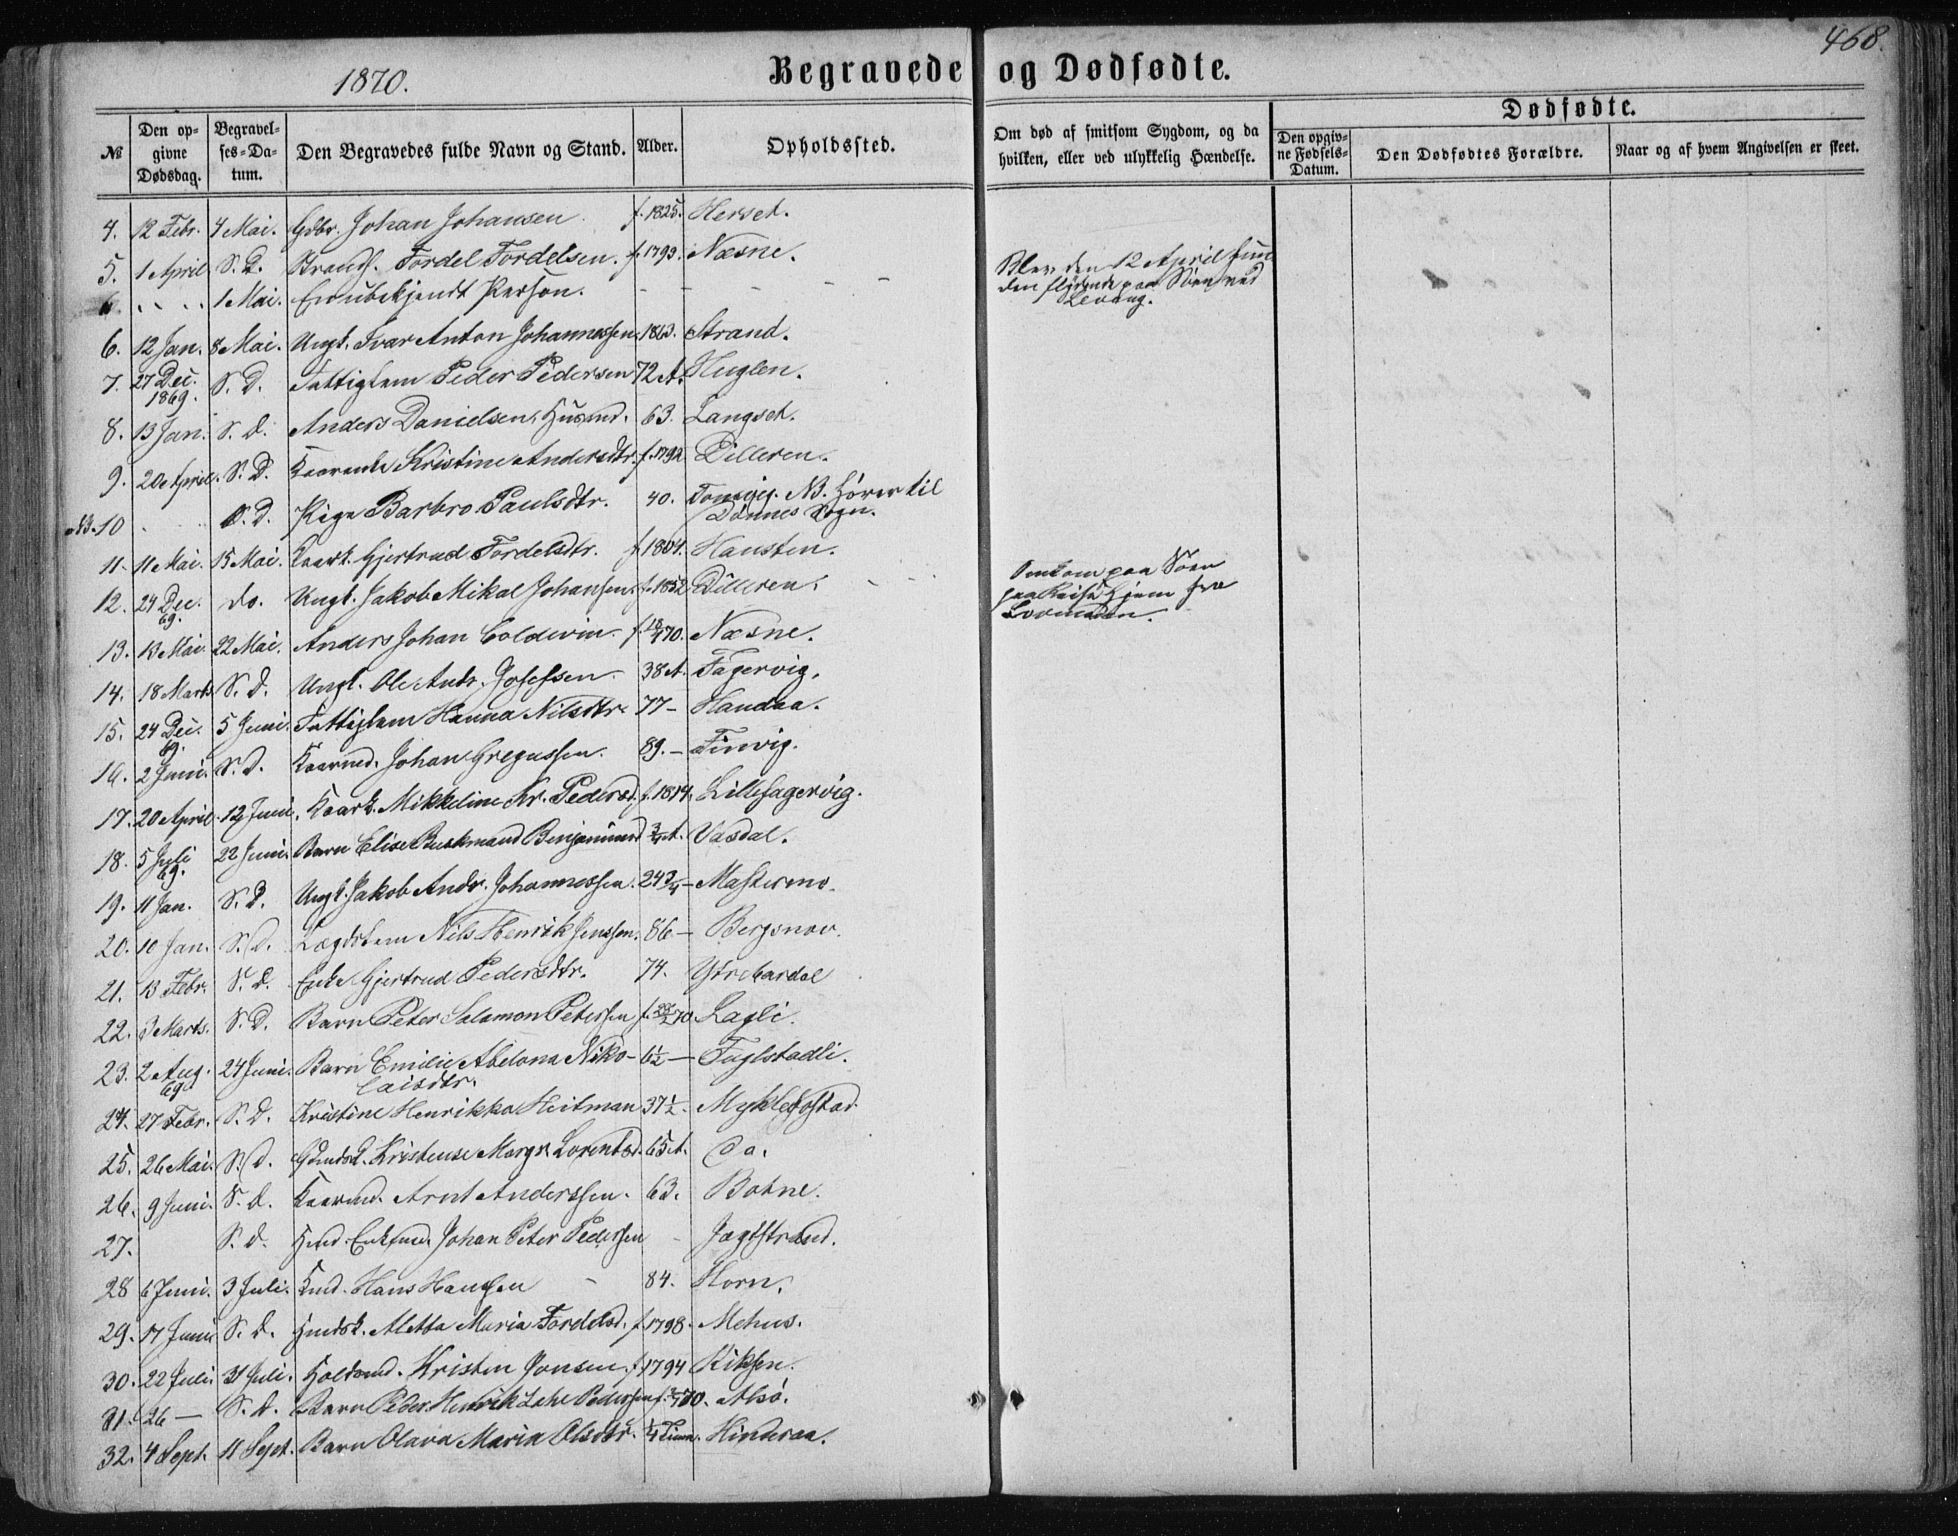 468.
1870.
Begravede og Dødfødte.
№
Den opgivne Dødsdag.
Begravelses-Datum.
Den Begravedes fulde Navn og Stand.
Alder.
Opholdssted.
Om død af smitsom Sygdom, og da hvilken, eller ved ulykkelig Hændelse.
Dødfødte.
Den opgivne Fødsels-Datum.
Den Dødfødtes Forældre.
Naar og af hvem Angivelsen er skeet.
4. 12 Febr. 4 Mai. Gdbr. Johan Johansen f. 1825. Herset.
5. 1 April S. D. Fordel Fordelsen. f. 1793. Næsne.
1 Mai. En ubekjendt Person. – – – – Blev den 12 April
den flydende paa Søen ved
Levang.
6. 12 Jan. 8 Mai. Ungk. Ivar Anton Johannessen 1863. Strand.
7. 27 Dec. 1869. S. D. Fattiglem Peder Pedersen 72 A. Huglen.
8. 13 Jan. S. D. Anders Danielsen, Husmd. 63. Langset.
9. 20 April. S. D. Kaarenke Kristine Andersdtr. f. 1792 Dilleren.
NB. 10 S. D. Pige Barbro Paulsdtr. 40. NB. Hører til
Dønnes Sogn.
11. 11 Mai. 15 Mai. Kaark. Gjertrud Fordelsdtr. f. 1804. Hansten.
12. 24 Dec. 69. do. Ungk. Jakob Mikal Johansen. f. 1852 Dilleren. Omkom paa Søen
paa Reise hjem fra
13. 13 Mai. 22 Mai. Anders Johan Coldevin. Næsne.
14. 18 Marts S. D. Ungk. Ole Andr. Josefsen 38 A. Fagervig.
15. 24 Dec. 69. 5 Juni. Fattiglem Hanna Nilsdtr. 77 – Handaa.
16. 2 Juni. S. D. Kaarmd. Johan Gregussen. 89. – Finvig.
17. 20 April. 12 Juni. Kaark. Mikkeline Kr. Pedersd. f. 1814. Lillefagervig.
18. 5 Juli 69. 22 Juni. Barn Elise Benjaminsd ¾ A. Vasdal.
19. 11 Jan. S. D. Ungk. Jakob Andr. Johannessen. 24 ¾ – Mastermo.
20. 10 Jan. S. D. Lægdslem Nils Henrik Jenssen. 86 –
21. 13 Febr. S. D. Enke Gjertrud Pedersdtr. 74. Ytre
22. 3 Marts. S. D. Barn Peter Salamon Petersen Lagli.
23. 2 Aug. 69 24 Juni. Barn Emilie Abelona Niko-
laisdtr. 6½ – Fuglstadli.
24. 27 Febr. S. D. Kristine Henrikka Heitman 37½. Myklebostad.
25. 26 Mai. S. D. Kristense Margr. Lorentsd. 65 A. Do.
26. 9 Juni. S. D. Kaarmd. Arnt Anderssen. 63. Botne.
27. S. D. Hmd. Enkemd. Johan Peter Pedersen – Jagtstrand.
28 6 Juni. 3 Juli. Kmd. Hans Hansen – 84. Horn.
29. 17 Juni S. D. Hmdsk. Aletta Maria Fordelsd. f. 1798. Mehus.
30. 22 Juli. 31 Juli. Holdsmd. Kristen Jonsen. f. 1794
31. 26 – S. D. Barn Peder Henrik Pedersen Alsø.
32. 4 Sept. 11 Sept. Barn Olava Maria Olsdtr. ¼ Time. Hinderaa.